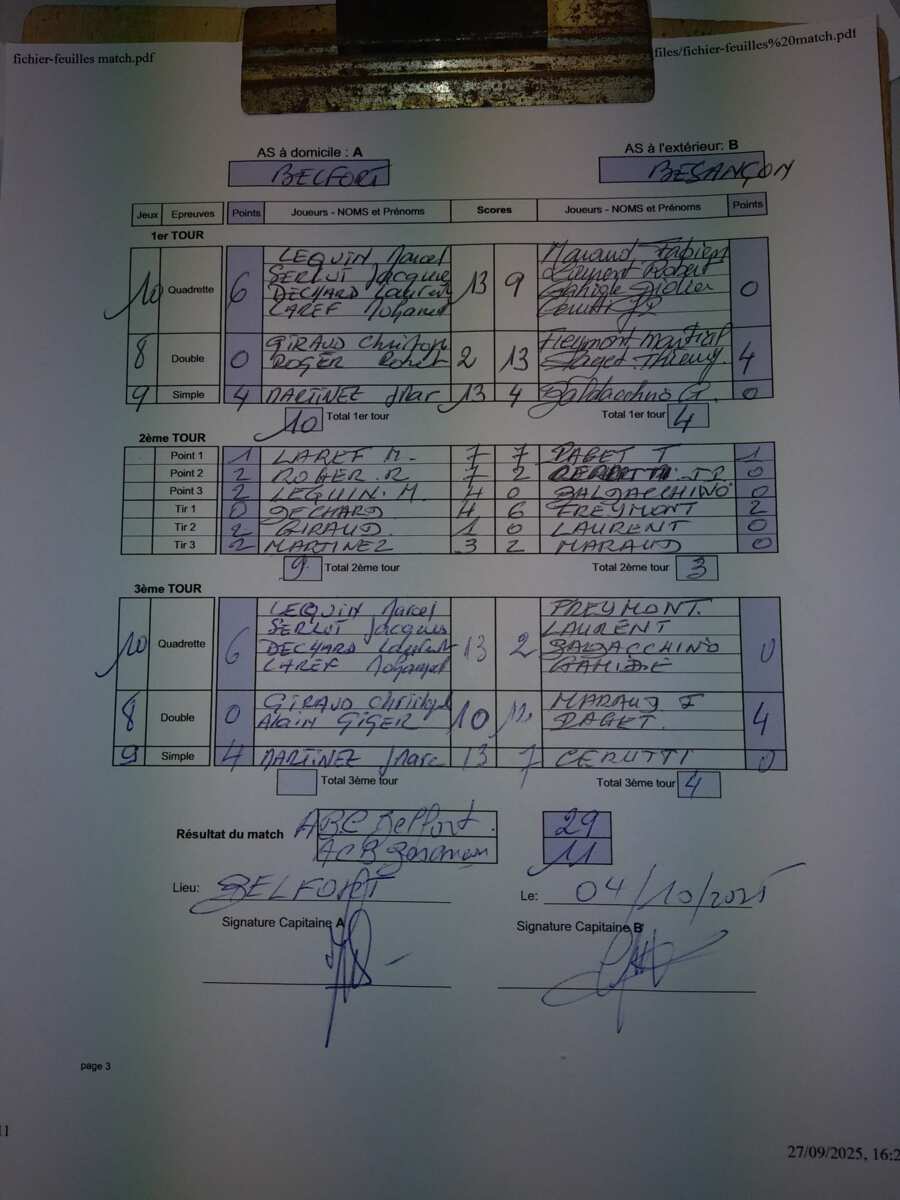 fichier-feuilles match.pdf files/fichier-feuilles%20match.pdf
AS à domicile : A AS à l'extérieur: B
BELFORT BESANÇON
Jeux Epreuves Points Joueurs - NOMS et Prénoms Scores Joueurs - NOMS et Prénoms Points
1er TOUR
LEQUIN Marcel Maraud Fabien
SERLUT Jacques Laurent Robert
10 Quadrette 6 DECHARD Laurent 13 9 Didier 0
LAREF Mohamed Cerutti JP
GIRAUD Christoph Freymont Martial
8 Double 0 ROGER Robert 2 13 Paget Thierry 4
9 Simple 4 MARTINEZ Marc 13 4 Baldacchino G. 0
10 Total 1er tour Total 1er tour 4
2ème TOUR
Point 1 1 LAREF M. 7 7 PAGET T 1
Point 2 2 ROGER R 7 2 CERUTTI JP 0
Point 3 2 LEQUIN. M. 4 0 BALDACCHINO 0
Tir 1 0 DECHARD 4 6 FREYMONT 2
Tir 2 2 GIRAUD 1 0 LAURENT 0
Tir 3 2 MARTINEZ 3 2 MARAUD 0
9 Total 2ème tour Total 2ème tour 3
3ème TOUR
LEQUIN Marcel FREYMONT.
SERLUT Jacques LAURENT
10 Quadrette 6 DECHARD Laurent 13 2 BALDACCHINO 0
LAREF Mohamed
GIRAUD Christoph MARAUD F
8 Double 0 Alain GIGER 10 11 PAGET. 4
9 Simple 4 MARTINEZ Marc 13 7 CERUTTI 0
Total 3ème tour Total 3ème tour 4
Résultat du match ABC Belfort. 29
ACB Besancon 11
Lieu: BELFORT Le: 04/10/2025
Signature Capitaine A Signature Capitaine B
page 3
27/09/2025, 16:2